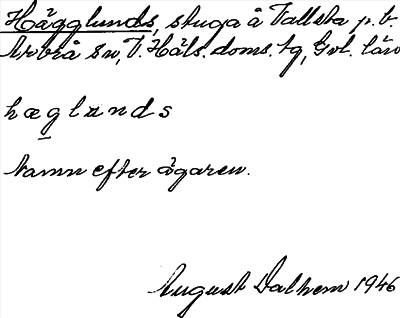 Hägglunds, stuga å Vallsta p.b.
Arbrå sn, V. Häls. doms. tg, Gvl. län
hæglunds
Namn efter ägaren.
August Dalhem 1946